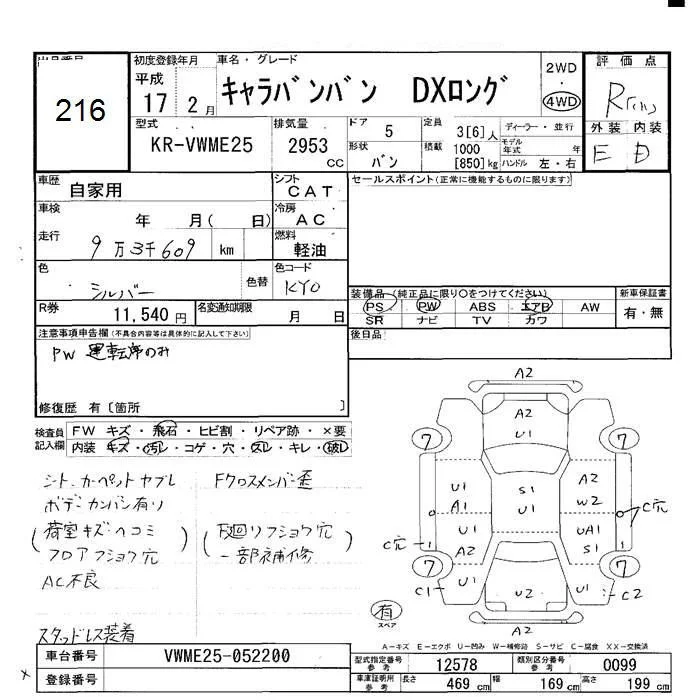 216
初度登録年月
平成
17 2月
車名・グレード
キャラバンバン DXロング
2WD
・
4WD
評価点
R
外装 内装
E D
型式
KR-VWME25
排気量
2953 CC
ドア 5
形状 バン
定員 3[6]人
積載 1000 [850]kg
ディーラー・並行
モデル年式 年
ハンドル 左・右
車歴 自家用
シフト CAT
車検 年 月( 日)
冷房 AC
走行 9万3千609 km
燃料 軽油
色 シルバー 色替
色コード KY0
R券 11,540円
名変通知期限 月 日
セールスポイント(正常に機能するものに限ります)
装備品 (純正品に限り○をつけてください)
PS PW ABS エアB AW
SR ナビ TV カワ
新車保証書
有・無
後日品
注意事項申告欄(不具合内容等は具体的に記入して下さい)
PW 運転席のみ
修復歴 有〔箇所 〕
検査員記入欄
FW キズ・飛石・ヒビ割・リペア跡・×要
内装 キズ・汚レ・コゲ・穴・スレ・キレ・破レ
シート、カーペットヤブレ
ボデーカンバン有り
(荷室キズヘコミ
フロアフショク穴)
AC不良
スタッドレス装着
Fクロスメンバー歪
(下廻りフショク穴
一部補修)
A2
A2
U1
7 7
U1 A1
S1 U1
A2 W2
C穴
C穴
U1 A2
UA1 S1
7 7
C1 U1
U2
U1 C2
A2
有
スペア
A－キズ E－エクボ U－凹み W－補修跡 S－サビ C－腐食 XX－交換済
車台番号 VWME25-052200
登録番号
型式指定番号 参考 12578
類別区分番号 参考 0099
車庫証明用 参考 長さ 469 cm 幅 169 cm 高さ 199 cm
×